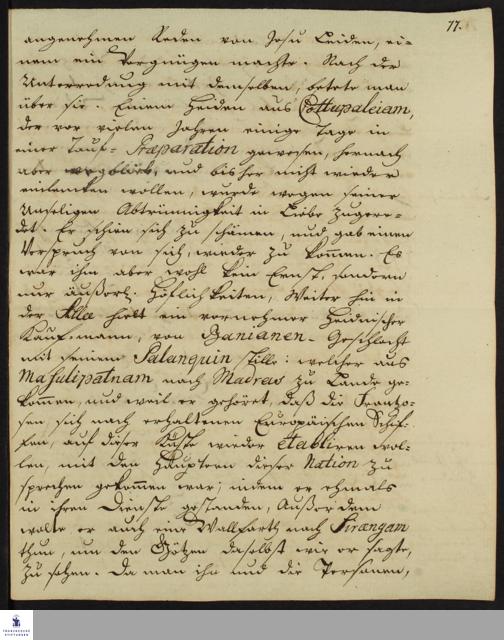 77.
angenehmen Reden von Jesu Leiden, ei-
nem ein Vergnügen machte. Nach der
Unterredung mit demselben, betete man
über sie. Einem Heiden aus Cottupaleiam,
der vor vielen Jahren einige Tage in
einer Tauf-Præparation gewesen, hernach
aber und bisher nicht wieder
einlencken wollen, wurde wegen seiner
Unseligen Abtrünnigkeit in Liebe zugere-
det. Er schien sich zu schämen, und gab einen
Verspruch von sich, wieder zu kommen. Es
war ihm aber wohl kein Ernst, sondern
nur äußerl. Höflichkeiten, Weiter hin in
der Allee hielt ein vornehmer Heidnischer
Kaufmann, von Banianen-Geschlecht
mit seinem Palanquin stille: welcher aus
Massulipatnam nach Madras zu Lande ge-
kommen, und weil er gehöret, daß die Franzo-
sen sich nach erhaltenen Europäischen Schif-
fen, auf dieser Küste wieder etabliren wol-
len, mit den Häuptern dieser Nation zu
sprechen gekommen war; indem er ehmals
in ihren Dienste gestanden, Außer dem
wolte er auch eine Wallfarth nach Sirangam
thun, um den Götzen daselbst wie er sagte,
zu sehen. Da man ihn und die Personen,
FRANCKESCHE
STIFTUNGEN